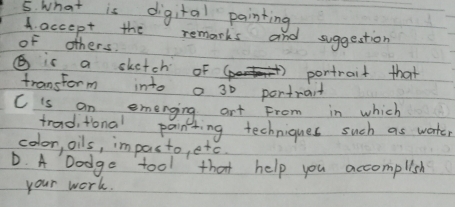 5. What is digital painting
A. accept the remarks and suggestion
of others.
B is a sketch of portrait that
transform into a 3D portrait
C is an emenging art from in which
traditional painting techniques such as water
color, oils, impasto, etc.
D. A Dodge tool that help you accomplish
your work.